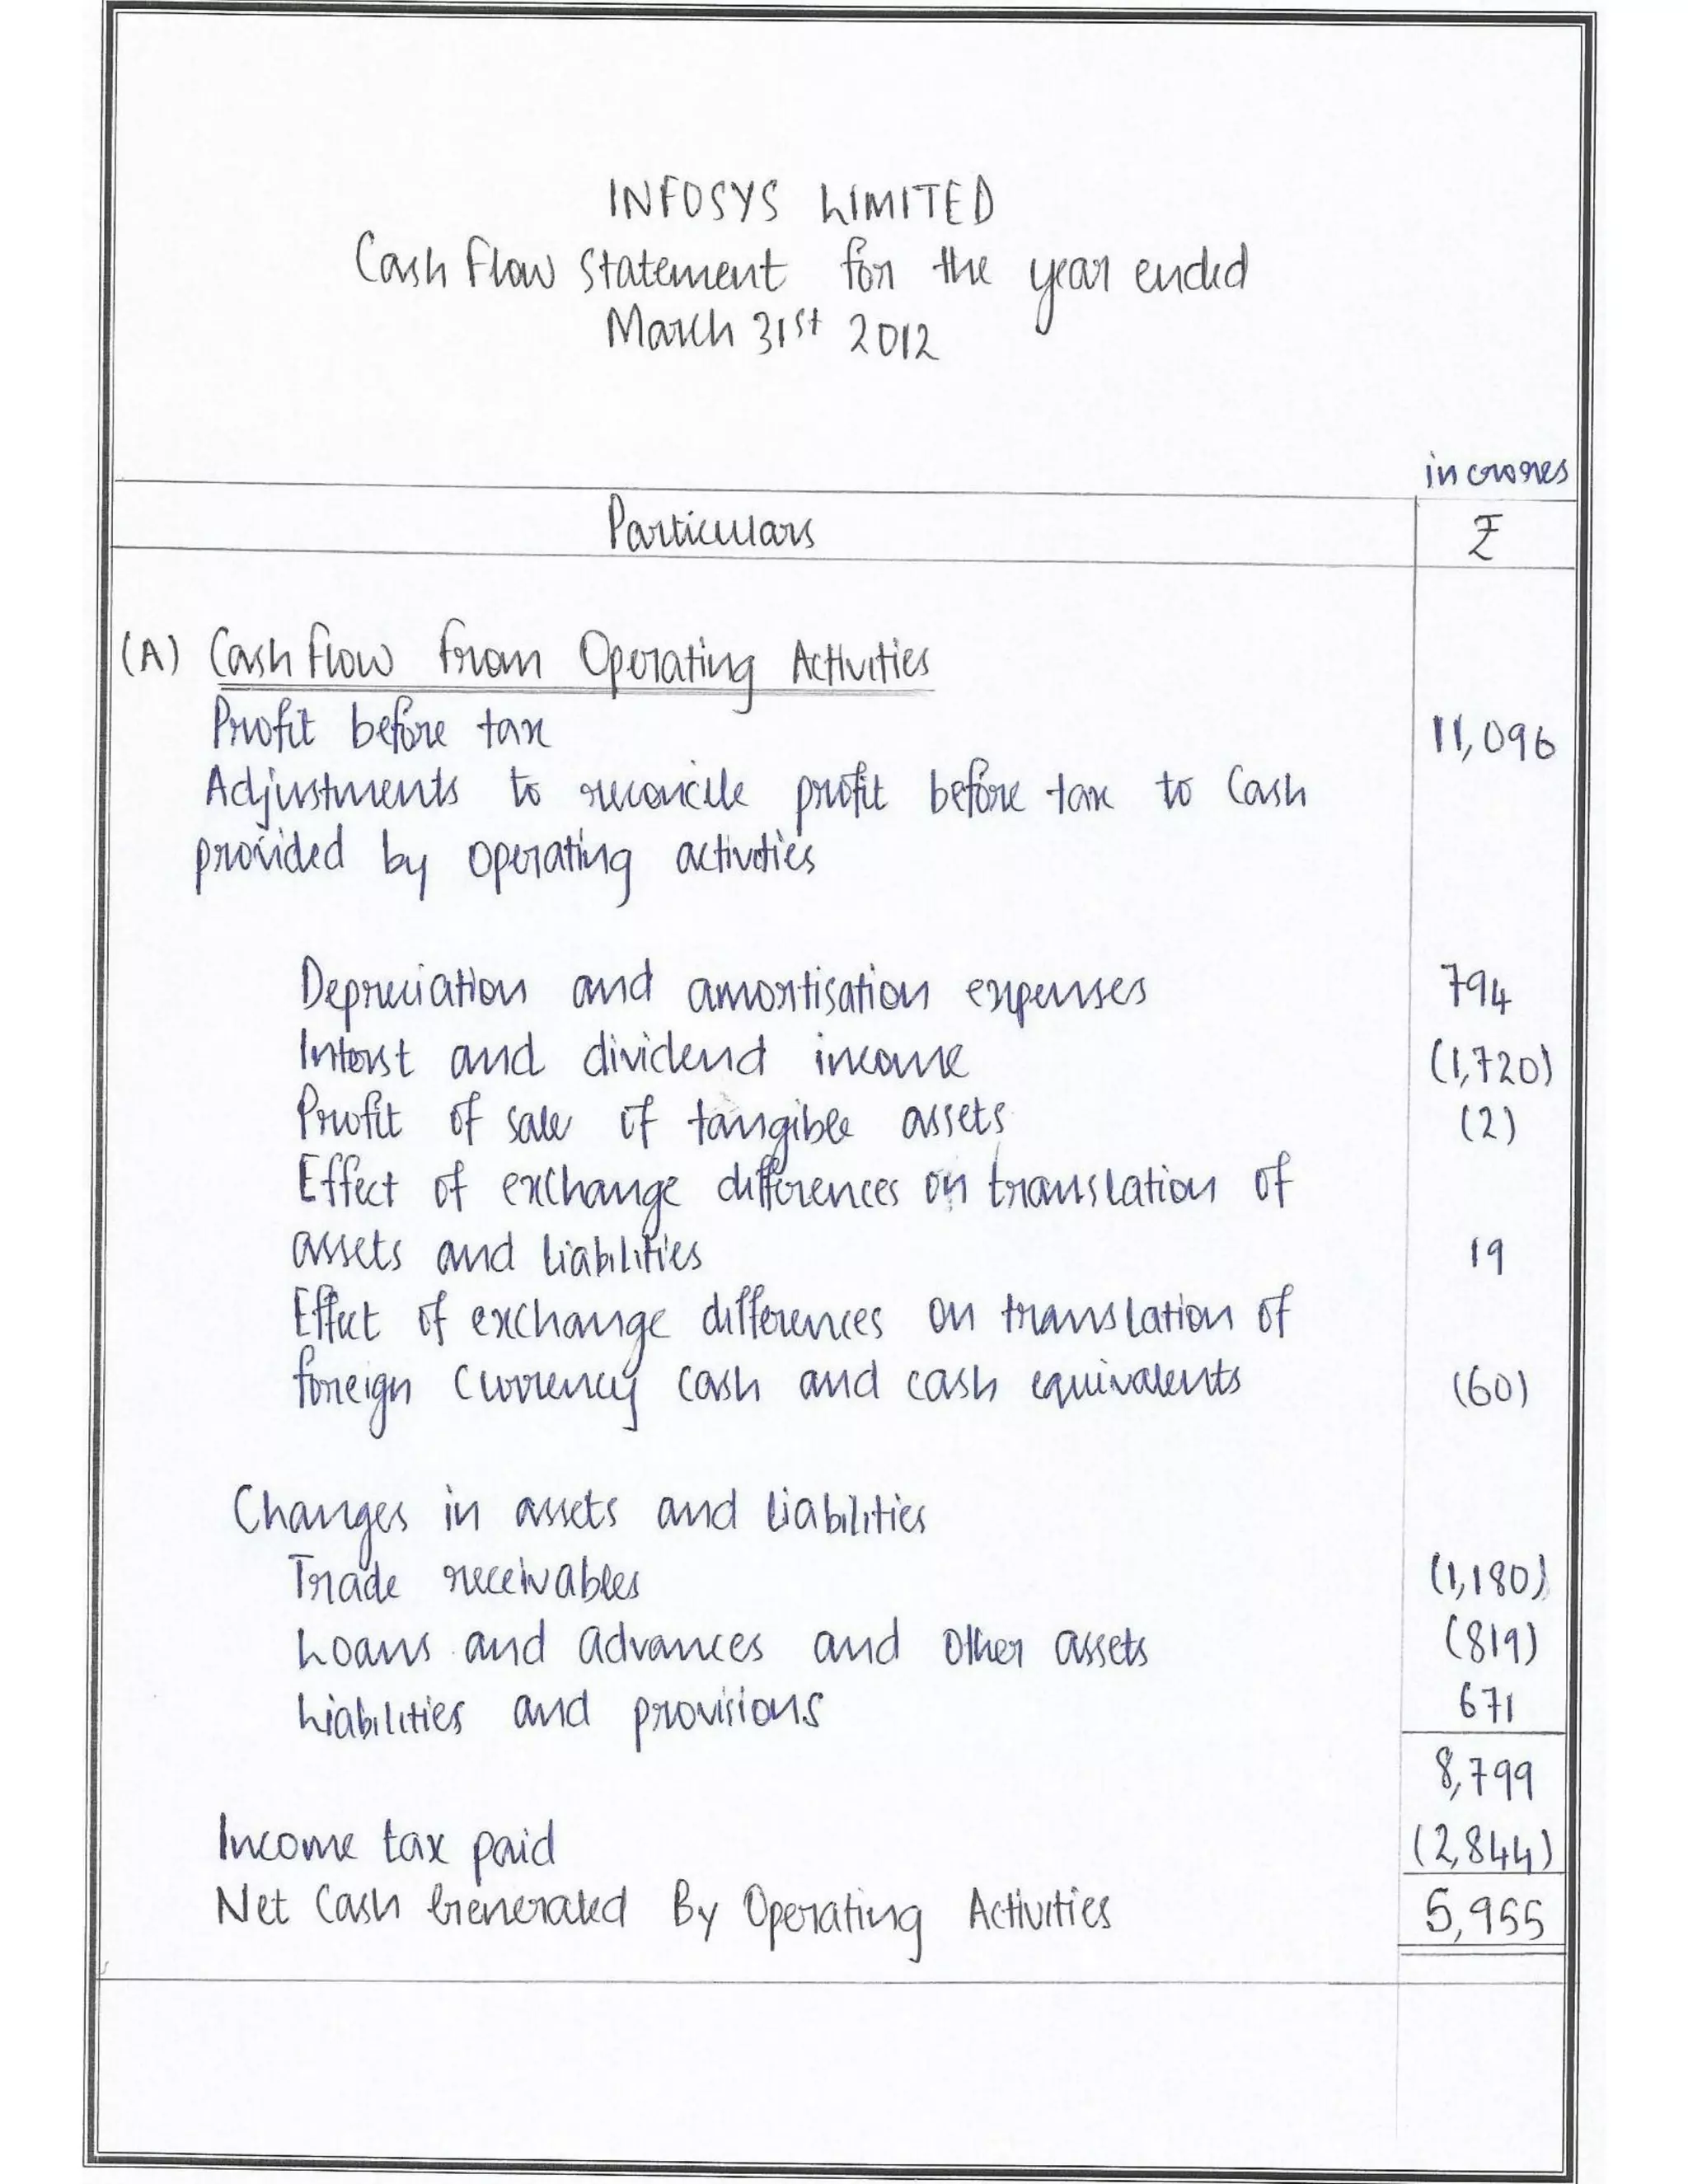 INFOSYS LIMITED
Cash Flow Statement for the year ended
March 31st 2012
in crores
Particulars ₹
(A) Cash flow from Operating Activities
Profit before tax 11,096
Adjustments to reconcile profit before tax to Cash
provided by operating activities
Depreciation and amortisation expenses 794
Interst and dividend income (1,720)
Profit of sale of tangible assets (2)
Effect of exchange differences on translation of
assets and liabilities 19
Effect of exchange differences on translation of
foreign currency cash and cash equivalents (60)
Changes in assets and liabilities
Trade receivables (1,180)
Loans and advances and other assets (819)
Liabilities and provisions 671
8,799
Income tax paid (2,844)
Net Cash Generated By Operating Activities 5,955